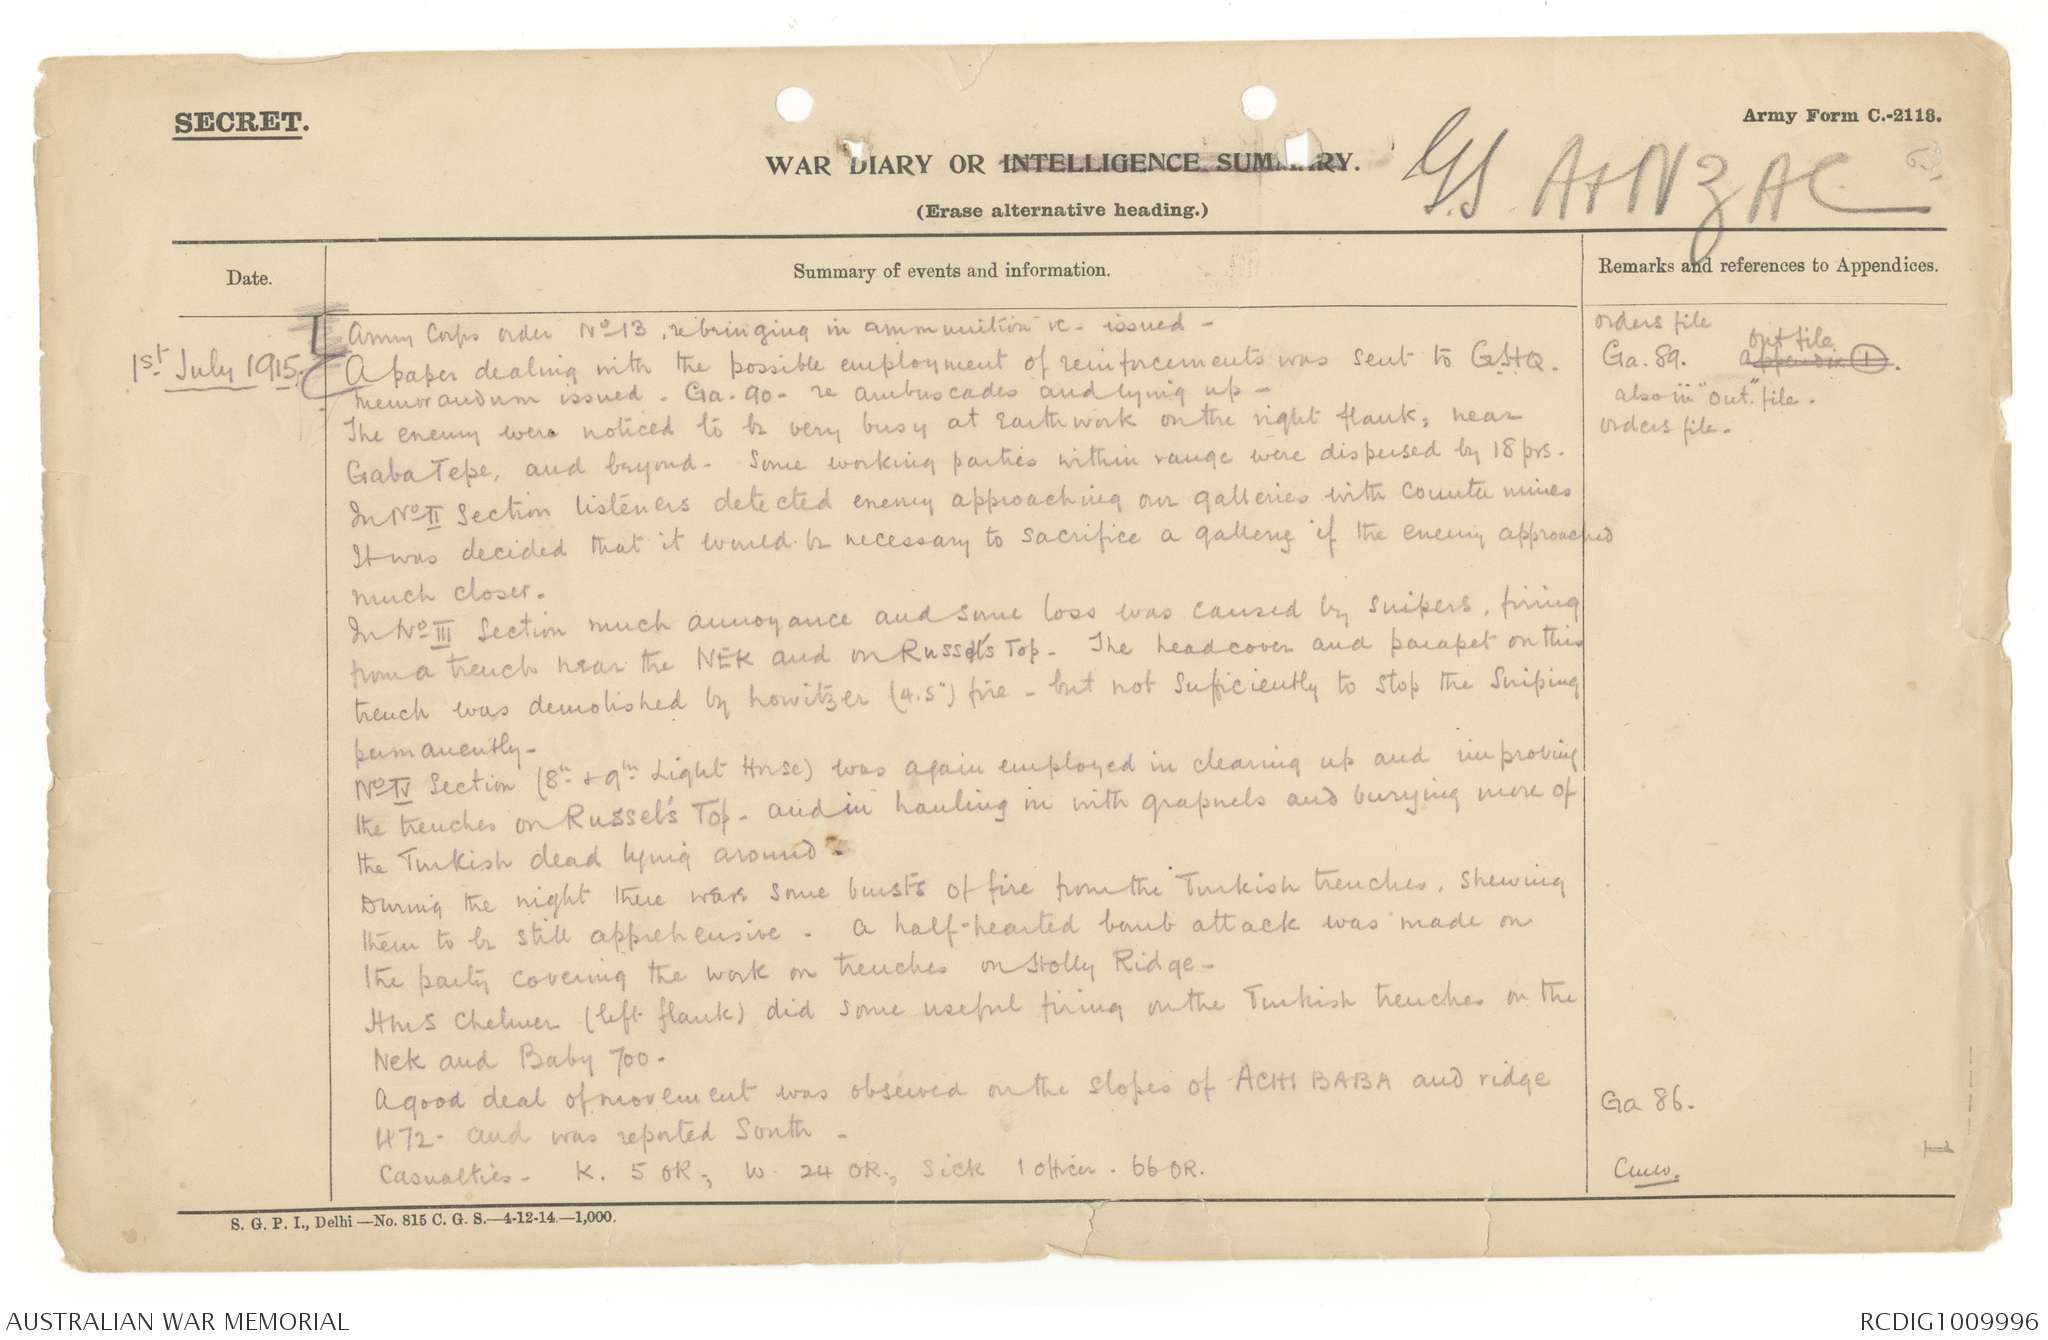 SECRET.
Army Form C.-2118.
WAR DIARY OR INTELLIGENCE SUMMARY.
(Erase alternative heading.)
G.S. A+NZAC
Date.
Summary of events and information.
Remarks and references to Appendices.
1st July 1915.
Army Corps order No 13, re bringing in ammunition &c - issued -
orders file
A paper dealing with the possible employment of reinforcements was sent to G.H.Q.
Ga. 89. appendix 1. out file
memorandum issued - Ga. 90 - re ambuscades and lying up -
also in "out" file.
The enemy were noticed to be very busy at Earthwork on the right flank, near
orders file.
Gaba Tepe, and beyond. Some working parties within range were dispersed by 18 prs.
In No II Section listeners detected enemy approaching our galleries with counter mines
It was decided that it would be necessary to sacrifice a gallery if the enemy approached
much closer.
In No III Section much annoyance and some loss was caused by snipers, firing
from a trench near the NEK and on Russel's Top. The headcover and parapet on this
trench was demolished by howitzer (4.5") fire - but not sufficiently to stop the sniping
permanently.
No IV Section (8th & 9th Light Horse) was again employed in clearing up and improving
the trenches on Russel's Top - and in hauling in with grapnels and burying more of
the Turkish dead lying around.
During the night there were some bursts of fire from the Turkish trenches, shewing
them to be still apprehensive. A half-hearted bomb attack was made on
the party covering the work on trenches on Holly Ridge -
HMS Chelmer (left flank) did some useful firing on the Turkish trenches on the
Nek and Baby 700.
A good deal of movement was observed on the slopes of ACHI BABA and ridge
Ga 86.
472 - and was reported South -
Casualties - K. 5 OR; W. 24 OR; Sick 1 officer - 66 OR.
1
S. G. P. I., Delhi—No. 815 C. G. S.—4-12-14.—1,000.
AUSTRALIAN WAR MEMORIAL
RCDIG1009996